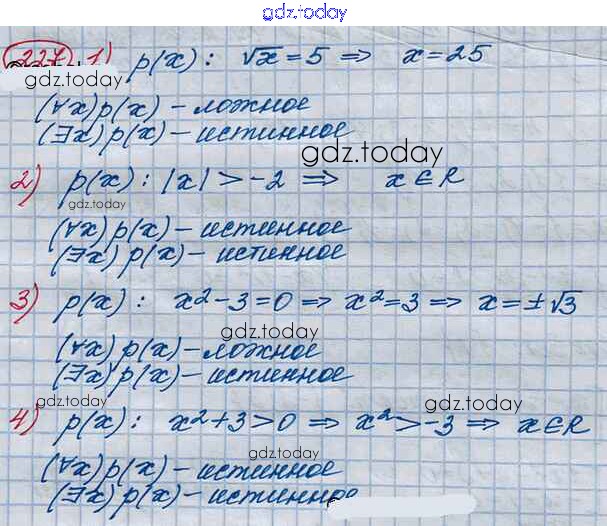 gdz.today
227 1) p(x): √x = 5 ⇒ x = 25
gdz.today
(∀x) p(x) – ложное
(∃x) p(x) – истинное
gdz.today
2) p(x): |x| > -2 ⇒ x ∈ R
gdz.today
(∀x) p(x) – истинное
(∃x) p(x) – истинное
3) p(x): x² - 3 = 0 ⇒ x² = 3 ⇒ x = ±√3
gdz.today
(∀x) p(x) – ложное
(∃x) p(x) – истинное
gdz.today gdz.today
4) p(x): x² + 3 > 0 ⇒ x² > -3 ⇒ x ∈ R
gdz.today
(∀x) p(x) – истинное
(∃x) p(x) – истинное